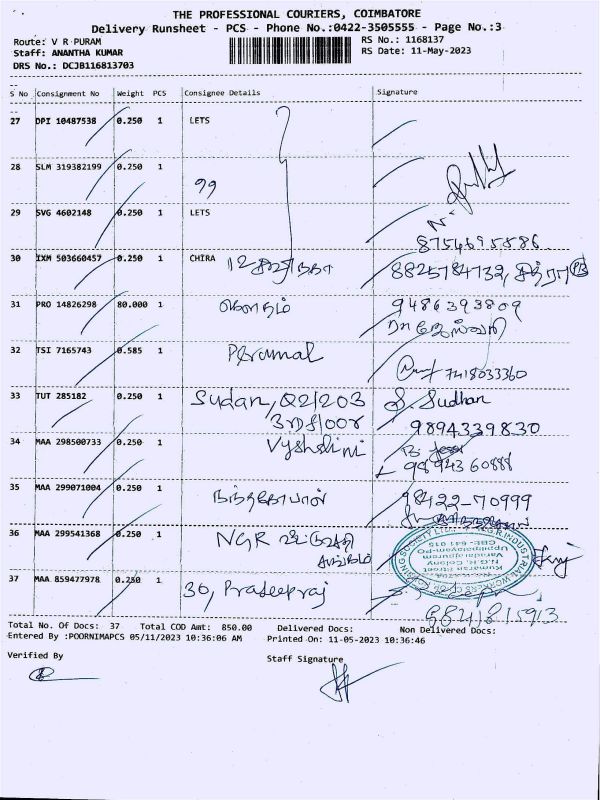 THE PROFESSIONAL COURIERS, COIMBATORE
Delivery Runsheet - PCS - Phone No.:0422-3505555 - Page No.:3
Route: V R PURAM RS No.: 1168137
Staff: ANANTHA KUMAR RS Date: 11-May-2023
DRS No.: DCJB116813703
S No Consignment No Weight PCS Consignee Details Signature
27 DPI 10487538 0.250 1 LETS
28 SLM 319382199 0.250 1
99
29 SVG 4602148 0.250 1 LETS
8754695886
30 IXM 503660457 0.250 1 CHIRA 12
8825784732,
31 PRO 14826298 80.000 1 9486393809
32 TSI 7165743 0.585 1 Perumal
7418033360
33 TUT 285182 0.250 1 Sudan, Q2/203 S. Sudhan
3rd floor 9894339830
34 MAA 298500733 0.250 1 Vyshalini
9894360888
35 MAA 299071004 0.250 1 நந்தகோபால் 98422-70999
36 MAA 299541368 0.250 1 NGR
N.G.R. Colony
Kumaran Street
Varadarajapuram
Uppilipalayam-PO
CBE- 641 015
37 MAA 859477978 0.250 1 30, Pradeepraj
Total No. Of Docs: 37 Total COD Amt: 850.00 Delivered Docs: Non Delivered Docs:
Entered By :POORNIMAPCS 05/11/2023 10:36:06 AM Printed On: 11-05-2023 10:36:46
Verified By Staff Signature